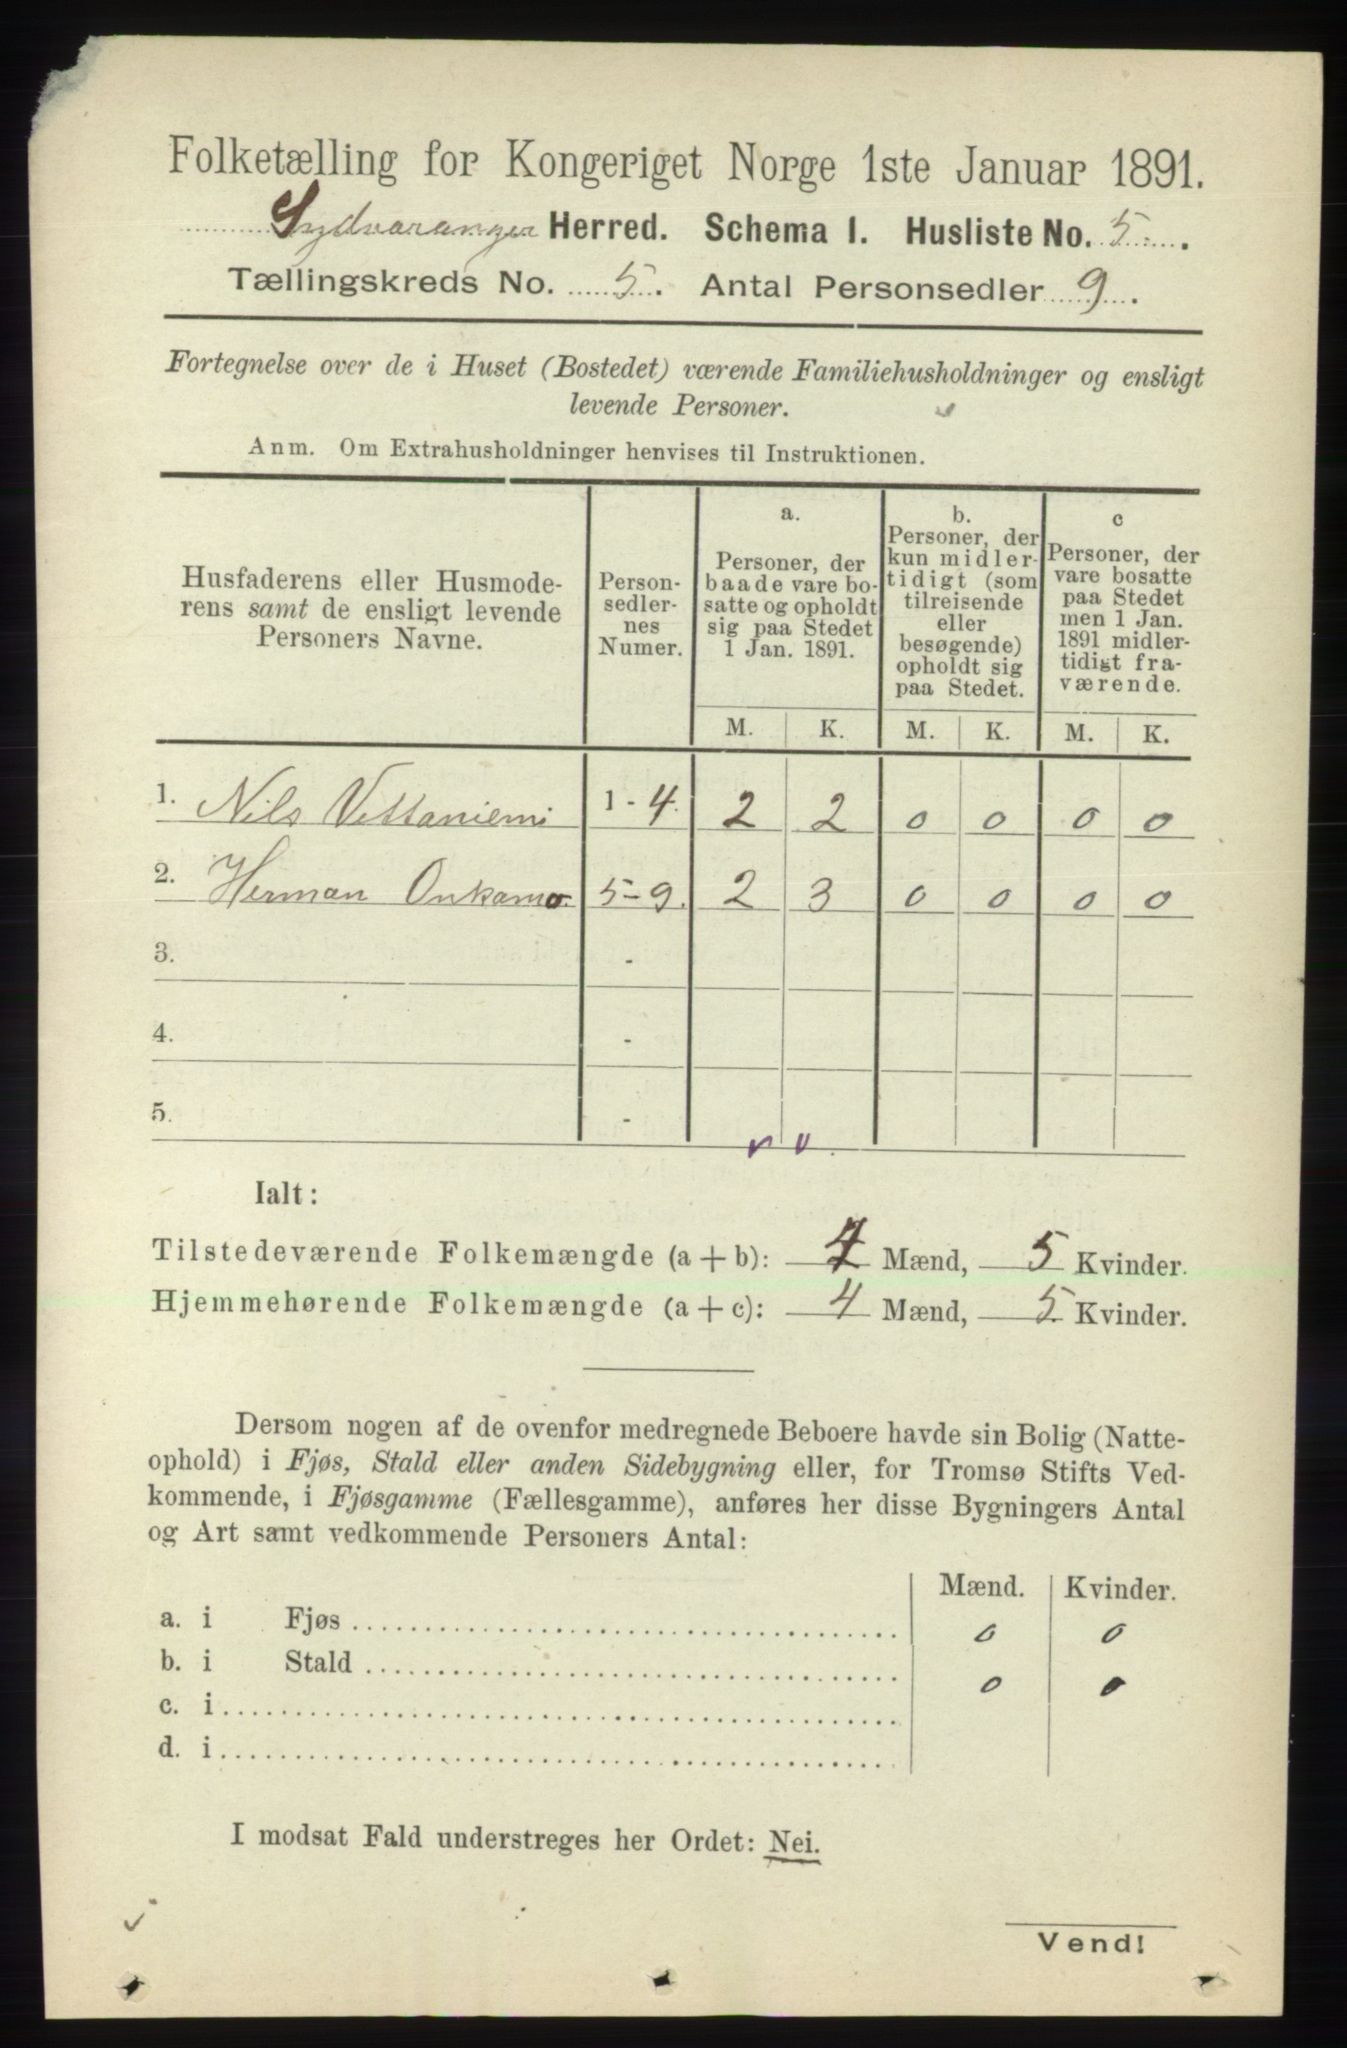 Folketælling for Kongeriget Norge 1ste Januar 1891.
Sydvaranger Herred. Schema 1. Husliste No. 5.
Tællingskreds No. 5. Antal Personsedler 9.
Fortegnelse over de i Huset (Bostedet) værende Familiehusholdninger og ensligt
levende Personer.
Anm. Om Extrahusholdninger henvises til Instruktionen.
Husfaderens eller Husmode-
rens samt de ensligt levende
Personers Navne.
Person-
sedler-
nes
Numer.
a.
Personer, der
baade vare bo-
satte og opholdt
sig paa Stedet
1 Jan. 1891.
b.
Personer, der
kun midler-
tidigt (som
tilreisende
eller
besøgende)
opholdt sig
paa Stedet.
c
Personer, der
vare bosatte
paa Stedet
men 1 Jan.
1891 midler-
tidigt fra-
værende.
M. K. M. K. M. K.
1. Nils Vettaniemi 1-4. 2 2 0 0 0 0
2. Herman Onkamo. 5-9. 2 3 0 0 0 0
3. -
4. -
5. -
Ialt:
Tilstedeværende Folkemængde (a + b): 4 Mænd, 5 Kvinder.
Hjemmehørende Folkemængde (a + c): 4 Mænd, 5 Kvinder.
Dersom nogen af de ovenfor medregnede Beboere havde sin Bolig (Natte-
ophold) i Fjøs, Stald eller anden Sidebygning eller, for Tromsø Stifts Ved-
kommende, i Fjøsgamme (Fællesgamme), anføres her disse Bygningers Antal
og Art samt vedkommende Personers Antal:
Mænd. Kvinder.
a. i Fjøs 0 0
b. i Stald 0 0
c. i
d. i
I modsat Fald understreges her Ordet: Nei.
Vend!